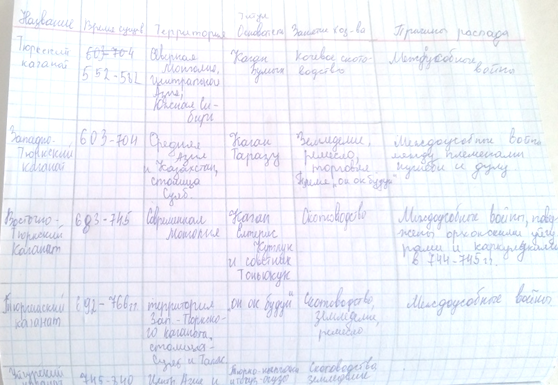 Название Время сущ-я Территория Титул Основателя Занятие нас-во Причины распада
Тюркский каганат
603-704
552-582
Северная Монголия, Центральная Азия, Южная Сибирь
Каган Бумын
Кочевое ското-
водство
Междусобные войны
Западно-
Тюркский
каганат
603-704
Средняя
Азия
и Казахстан,
столица
Суяб
Каган
Тарду
Земледелие,
ремесло,
торговля
"он ок будун"
Междоусобные войны
между племенами
нушиби и дулу
Восточно-
Тюркский
Каганат
683-745
Современная
Монголия
Каган
Кутлук
и советник
Тоньюкук
Скотоводство
Междусобные войны,
в 744-745 гг.
Тюргешский
каганат
692-766 гг
территория
Зап-Тюркско-
го каганата,
столица-
Суяб и Талас
"он ок будун"
Скотоводство,
земледелие,
ремесло
Междоусобные войны
Уйгурский
745-840
Центр. Азия и
Скотоводство
земледелие